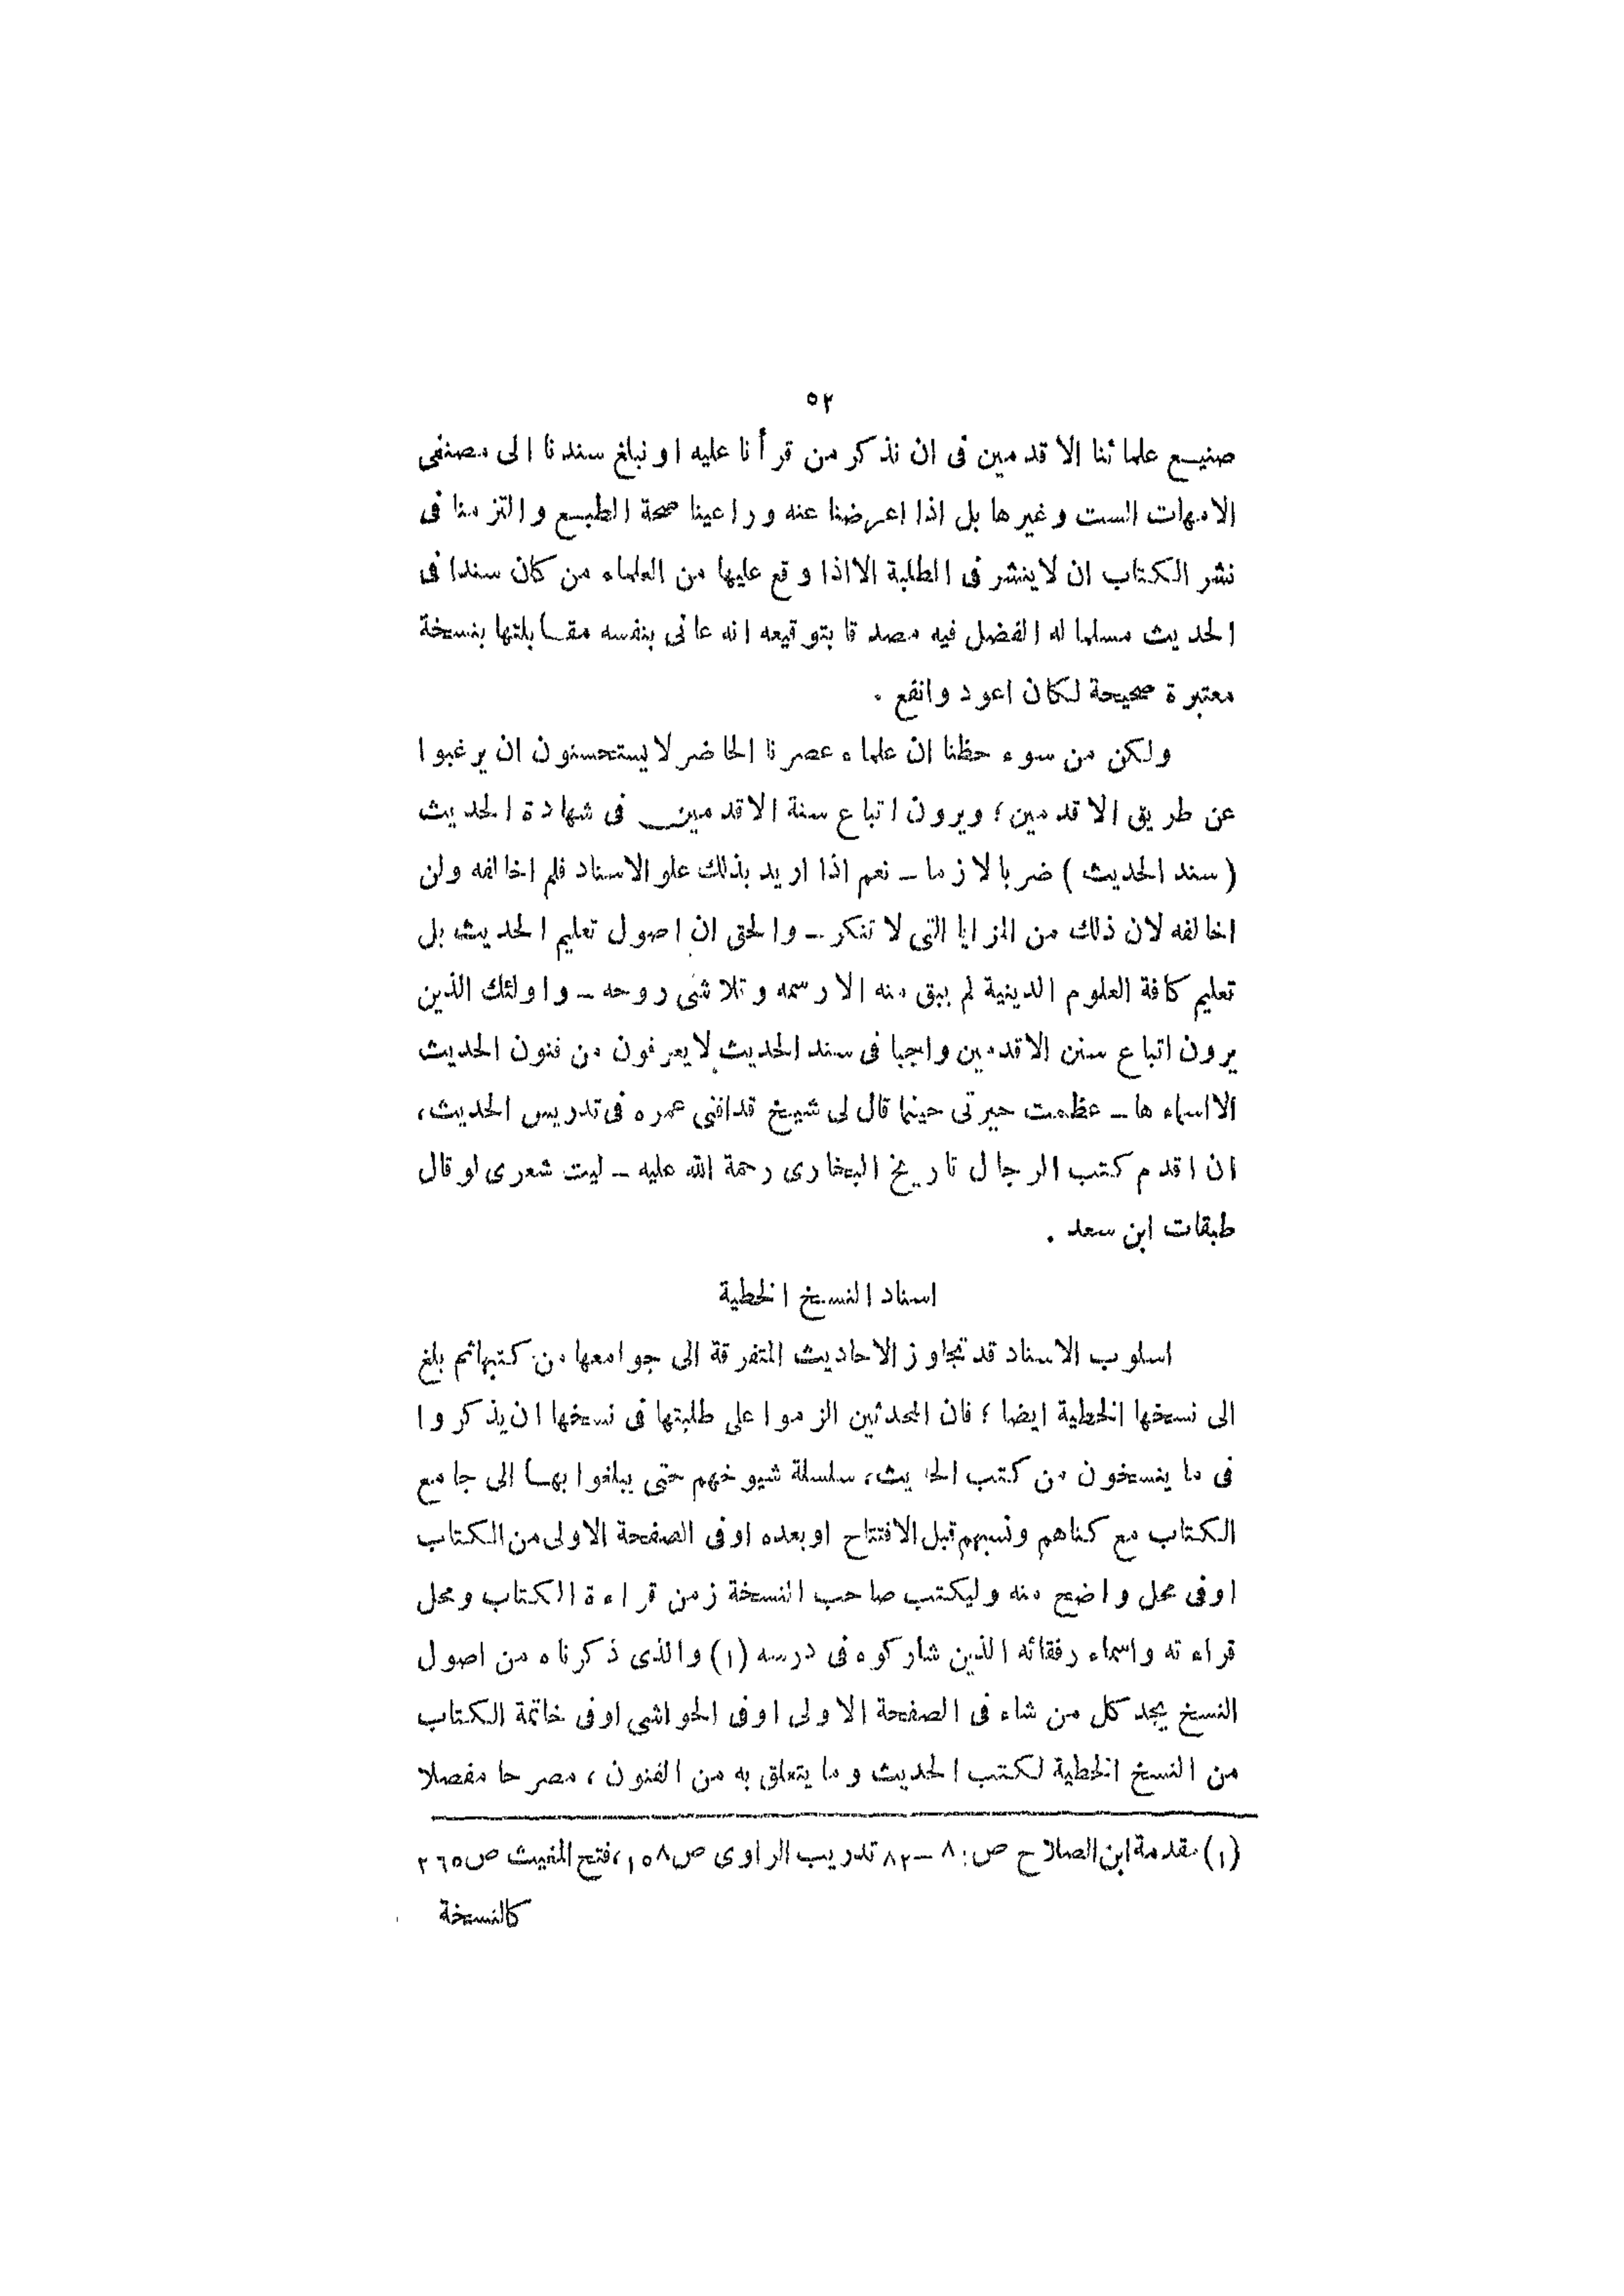 ٥٢
صنيع علمائنا الاقدمين فى ان نذكر من قرأنا عليه او نبلغ سندنا الى مصنفى
الامهات الست وغيرها بل اذا اعرضنا عنه وراعينا صحة الطبع والتزمنا فى
نشر الكتاب ان لاينشر فى الطلبة الااذا وقع عليها من العلماء من كان سندا فى
الحديث مسلما له الفضل فيه مصدقا بتوقيعه انه عانى بنفسه مقابلتها بنسخة
معتبرة صحيحة لكان اعود وانفع .
ولكن من سوء حظنا ان علماء عصرنا الحاضر لايستحسنون ان يرغبوا
عن طريق الاقدمين؛ ويرون اتباع سنة الاقدمين فى شهادة الحديث
( سند الحديث ) ضربا لازما ـ نعم اذا اريد بذلك علو الاسناد فلم اخالفه ولن
اخالفه لان ذلك من المزايا التى لا تنكر ـ والحق ان اصول تعليم الحديث بل
تعليم كافة العلوم الدينية لم يبق منه الا رسمه وتلاشى روحه ـ واولئك الذين
يرون اتباع سنن الاقدمين واجبا فى سند الحديث لايعرفون من فنون الحديث
الااسماءها ـ عظمت حيرتى حينما قال لى شيخ قدافنى عمره فى تدريس الحديث،
ان اقدم كتب الرجال تاريخ البخارى رحمة الله عليه ـ ليت شعرى لو قال
طبقات ابن سعد .
اسناد النسخ الخطية
اسلوب الاسناد قد تجاوز الاحاديث المتفرقة الى جوامعها من كتبهاثم بلغ
الى نسخها الخطية ايضا ؛ فان المحدثين الزموا على طلبتها فى نسخها ان يذكروا
فى ما ينسخون من كتب الحديث، سلسلة شيوخهم حتى يبلغوا بها الى جامع
الكتاب مع كناهم ونسبهم قبل الافتتاح اوبعده اوفى الصفحة الاولى من الكتاب
اوفى محل واضح منه وليكتب صاحب النسخة زمن قراءة الكتاب ومحل
قراءته واسماء رفقائه الذين شاركوه فى درسه (١) والذى ذكرناه من اصول
النسخ يجد كل من شاء فى الصفحة الاولى اوفى الحواشى اوفى خاتمة الكتاب
من النسخ الخطية لكتب الحديث وما يتعلق به من الفنون ، مصرحا مفصلا
(١) مقدمة ابن الصلاح ص: ٨ – ٨٢ تدريب الراوى ص١٥٨، فتح المغيث ص٢٦٥
كالنسخة